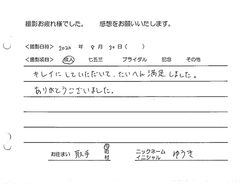 撮影お疲れ様でした。 感想をお願いいたします。
<撮影日時> 2020 年 8月 30日( )
<撮影項目> 成人 七五三 ブライダル 記念 その他
キレイにしていただいて、たいへん満足しました。
ありがとうございました。
お住まい 取手 市 町 村 ニックネーム イニシャル ゆうき